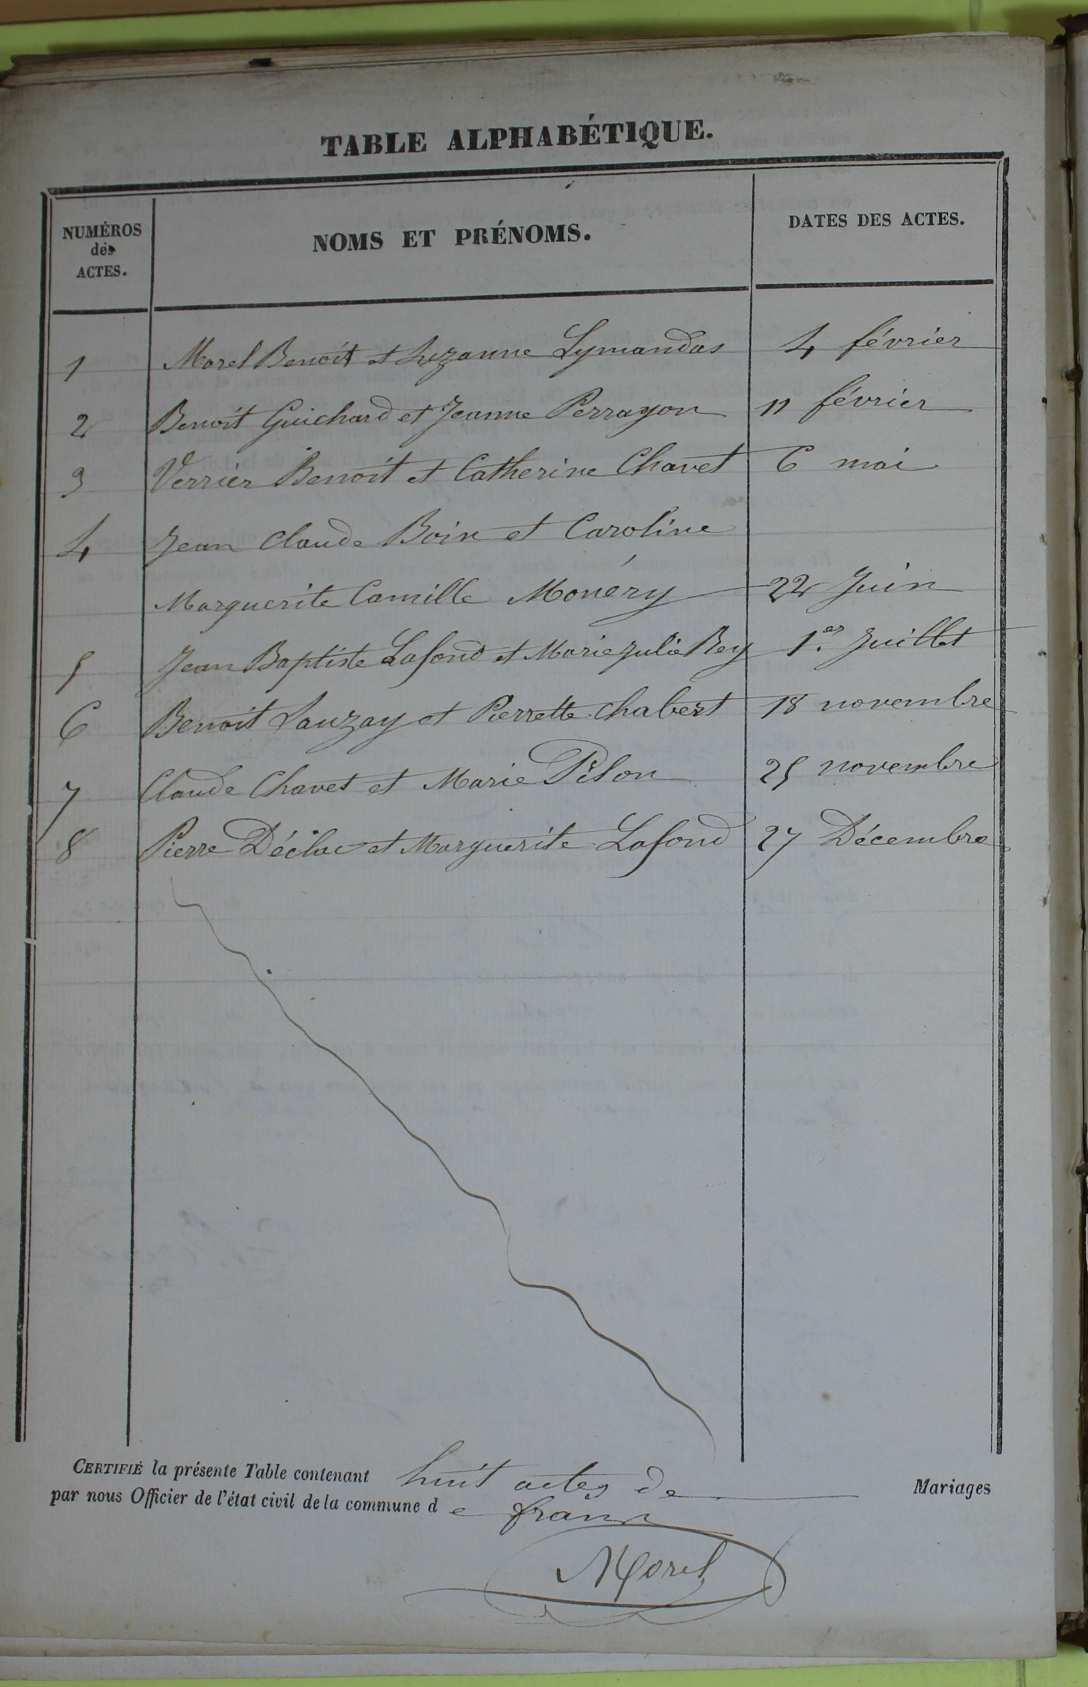 TABLE ALPHABÉTIQUE.
NUMÉROS
des
ACTES.
NOMS ET PRÉNOMS.
DATES DES ACTES.
1 Morel Benoit et Suzanne Lymandas 4 février
2 Benoit Guichard et Jeanne Perrayon 11 février
3 Verrier Benoit et Catherine Chavet 6 mai
4 Jean Claude Boin et Caroline
Marguerite Camille Monéry 22 Juin
5 Jean Baptiste Lafond et Marie Julie Rey 1.er Juillet
6 Benoit Lauzay et Pierrette Chabert 18 novembre
7 Claude Chavet et Marie Pilon 25 novembre
8 Pierre Déclac et Marguerite Lafond 27 Décembre
CERTIFIÉ la présente Table contenant huit actes de Mariages
par nous Officier de l'état civil de la commune d e
Morel